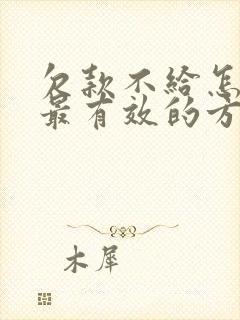 欠款不给怎
最有效的方
木犀